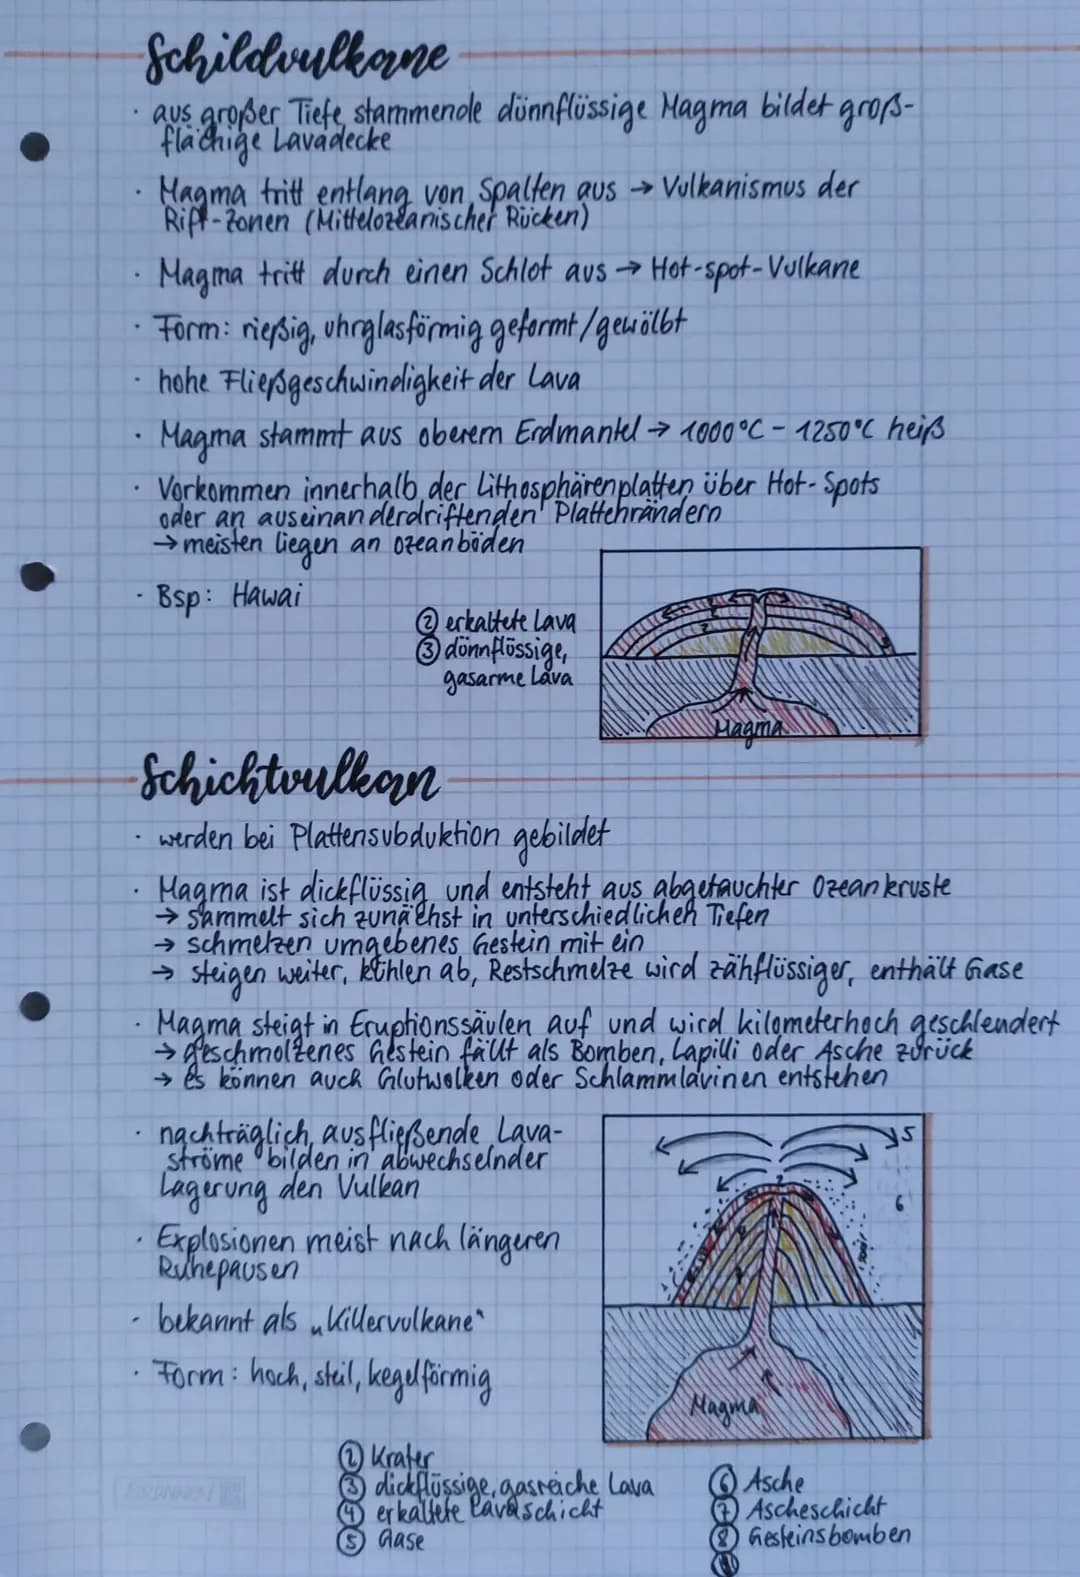 Schildvulkane
· aus großer Tiefe stammende dünnflüssige Magma bildet groß-
flächige Lavadecke
· Magma tritt entlang von Spalten aus → Vulkanismus der
Rift-Zonen (Mittelozeanischer Rücken)
· Magma tritt durch einen Schlot aus → Hot-spot-Vulkane
· Form: rießig, uhrglasförmig geformt/gewölbt
· hohe Fließgeschwindigkeit der Lava
· Magma stammt aus oberem Erdmantel → 1000°C - 1250°C heiß
· Vorkommen innerhalb der Lithosphärenplatten über Hot-Spots
oder an auseinanderdriftenden Plattenrändern
→ meisten liegen an ozeanböden
· Bsp: Hawai
② erkaltete Lava
③ dünnflüssige,
gasarme Lava
2
2
3
Magma
Schichtvulkan
· werden bei Plattensubduktion gebildet
· Magma ist dickflüssig und entsteht aus abgetauchter Ozeankruste
→ sammelt sich zunächst in unterschiedlichen Tiefen
→ schmelzen umgebenes Gestein mit ein
→ steigen weiter, kühlen ab, Restschmelze wird zähflüssiger, enthält Gase
· Magma steigt in Eruptionssäulen auf und wird kilometerhoch geschlendert
→ geschmolzenes Gestein fällt als Bomben, Lapilli oder Asche zurück
→ es können auch Glutwolken oder Schlammlavinen entstehen
· nachträglich ausfließende Lava-
ströme bilden in abwechselnder
Lagerung den Vulkan
· Explosionen meist nach längeren
Ruhepausen
· bekannt als „Killervulkane"
· Form: hoch, steil, kegelförmig
5
2
6
Magma
② Krater
③ dickflüssige, gasreiche Lava
④ erkaltete Lavaschicht
⑤ Gase
⑥ Asche
⑦ Ascheschicht
⑧ Gesteinsbomben